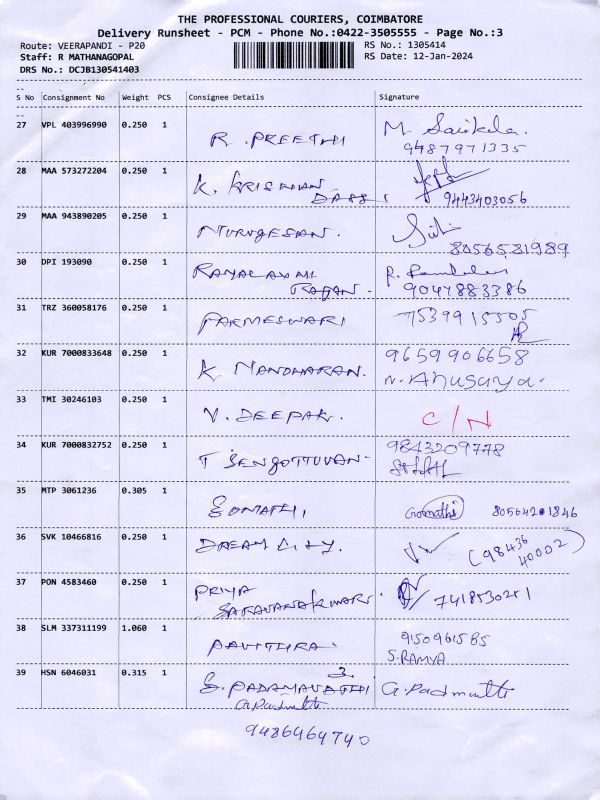 THE PROFESSIONAL COURIERS, COIMBATORE
Delivery Runsheet - PCM - Phone No.:0422-3505555 - Page No.:3
Route: VEERAPANDI - P20 RS No.: 1305414
Staff: R MATHANAGOPAL RS Date: 12-Jan-2024
DRS No.: DCJB130541403
S No Consignment No Weight PCS Consignee Details Signature
27 VPL 403996990 0.250 1 R. PREETHI M. Sasikala
9487971335
28 MAA 573272204 0.250 1 K. KRISHNAN
DASS 9443403056
29 MAA 943890205 0.250 1 MURUGESAN.
8056581989
30 DPI 193090 0.250 1 RAMALAXMI
RAJAN. 9047883386
31 TRZ 360058176 0.250 1 PARMESWARI 7539915505
32 KUR 7000833648 0.250 1 K MANOHARAN. 9659906658
N. Anusuya.
33 TMI 30246103 0.250 1 V. DEEPAK. C/N
34 KUR 7000832752 0.250 1 T SENGOTTUVAN- 9843209778
35 MTP 3061236 0.305 1 GOMATHI, Gomathi 8056421846
36 SVK 10466816 0.250 1 DREAM CITY. (98436
40002)
37 PON 4583460 0.250 1 PRIYA
SARAVANAKUMAR. 7418530251
38 SLM 337311199 1.060 1 PAVITHRA. 9150961585
S. RAMYA
39 HSN 6046031 0.315 1 G. PADAMAVATHI G. Padmathi
G. Padmathi
9486464740